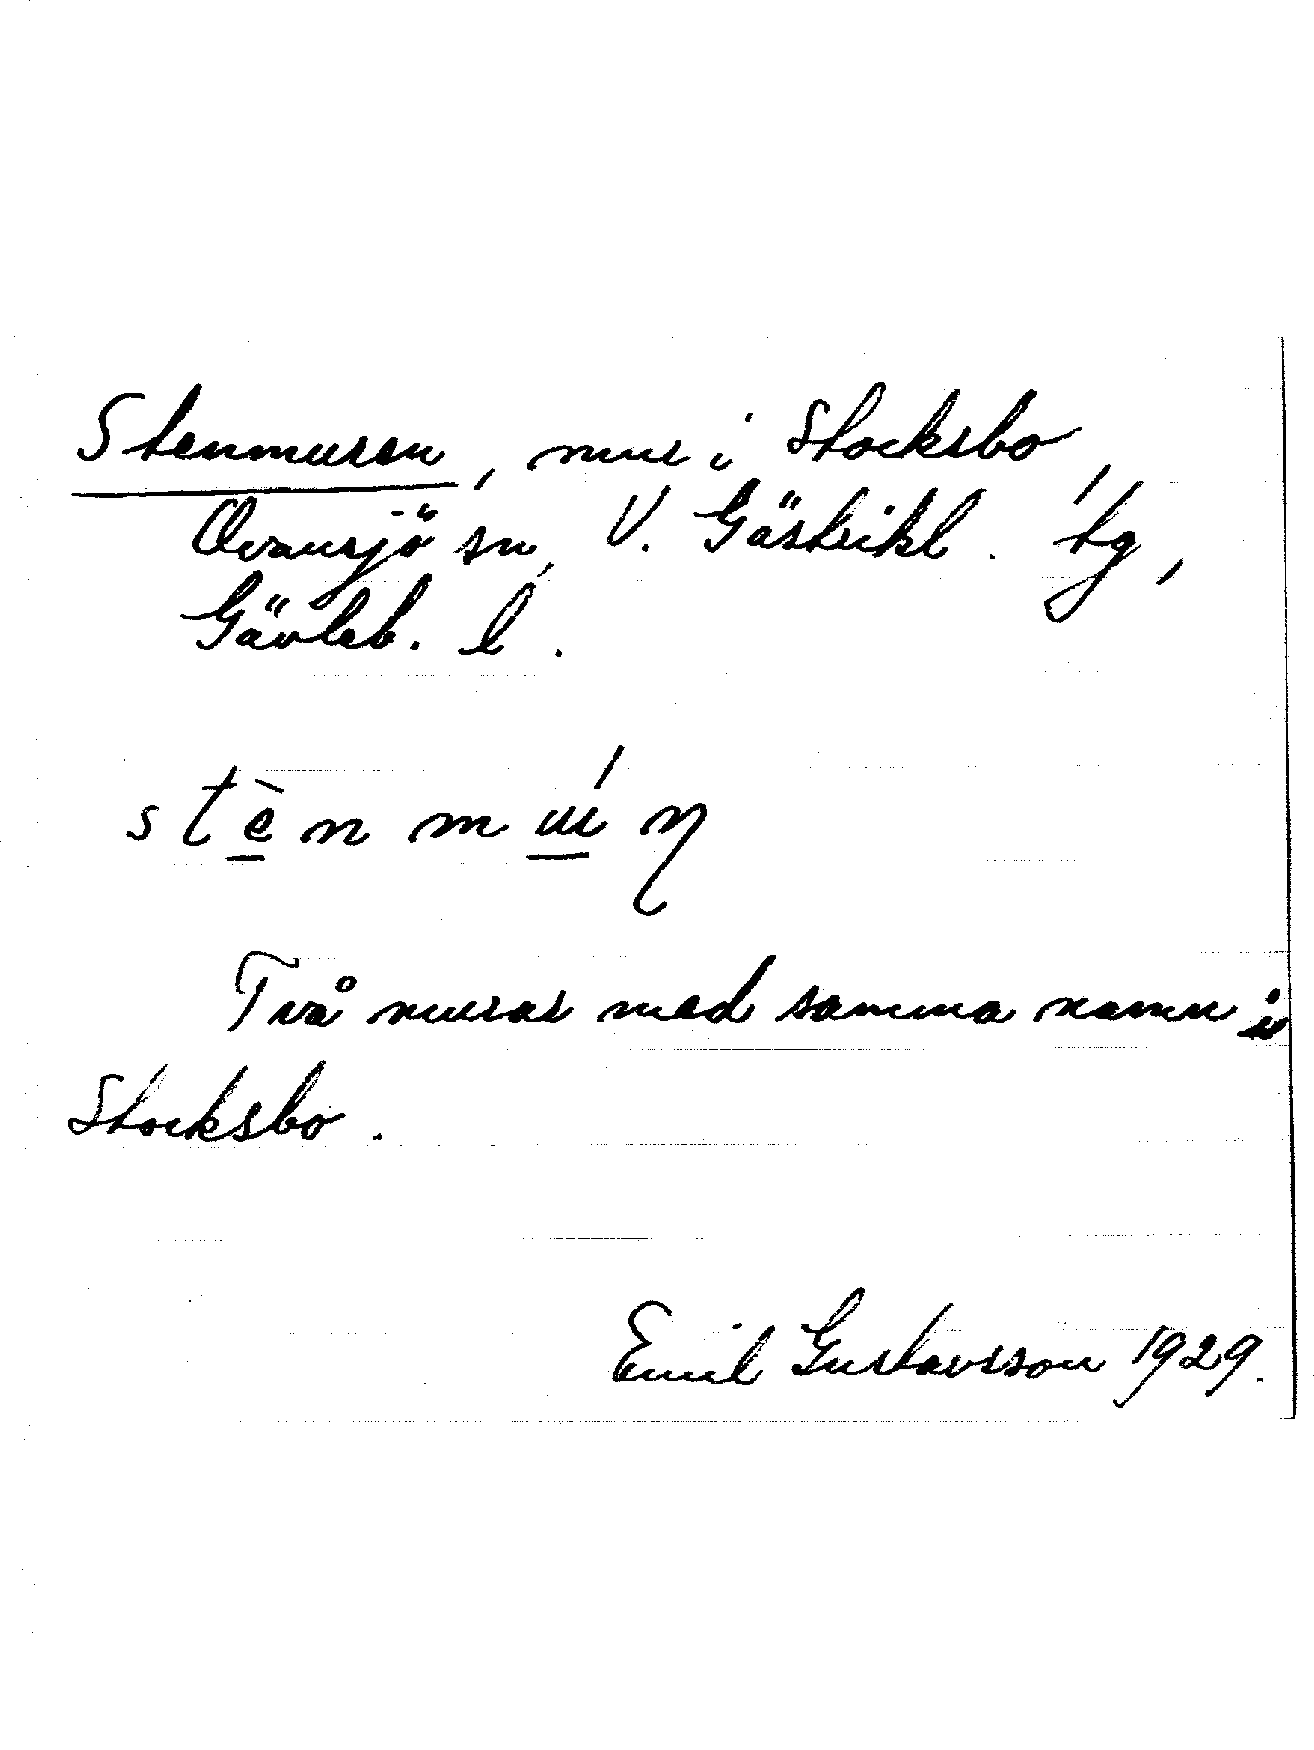 Stenmuren, mur i Stocksbo,
Ovansjö sn, V. Gästrikl. tg,
Gävleb. l.
stè̱n mu̱ń
Två murar med samma namn i
Stocksbo.
Emil Gustavsson 1929.